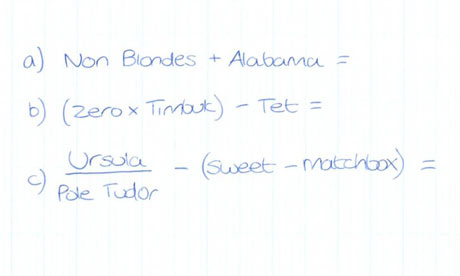 a) Non Blondes + Alabama =
b) (zero x Timbuk) - Tet =
c) Ursula / Pole Tudor - (sweet - matchbox) =